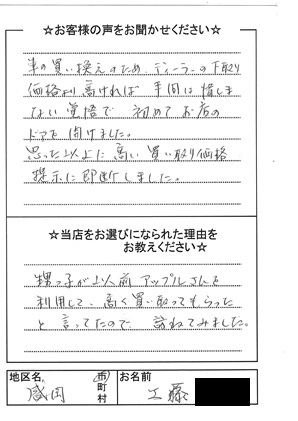 ☆お客様の声をお聞かせください☆
車の買い換えのため ディーラーの下取り
価格より高ければ 手間は惜しま
ない覚悟で 初めてお店の
ドアを開けました。
思った以上に高い買い取り価格
提示に即断しました。
☆当店をお選びになられた理由を
お教えください☆
甥っ子が以前アップルさんを
利用して、高く買い取ってもらった
と言ってたので 訪ねてみました。
地区名 市町村 お名前
盛岡 工藤